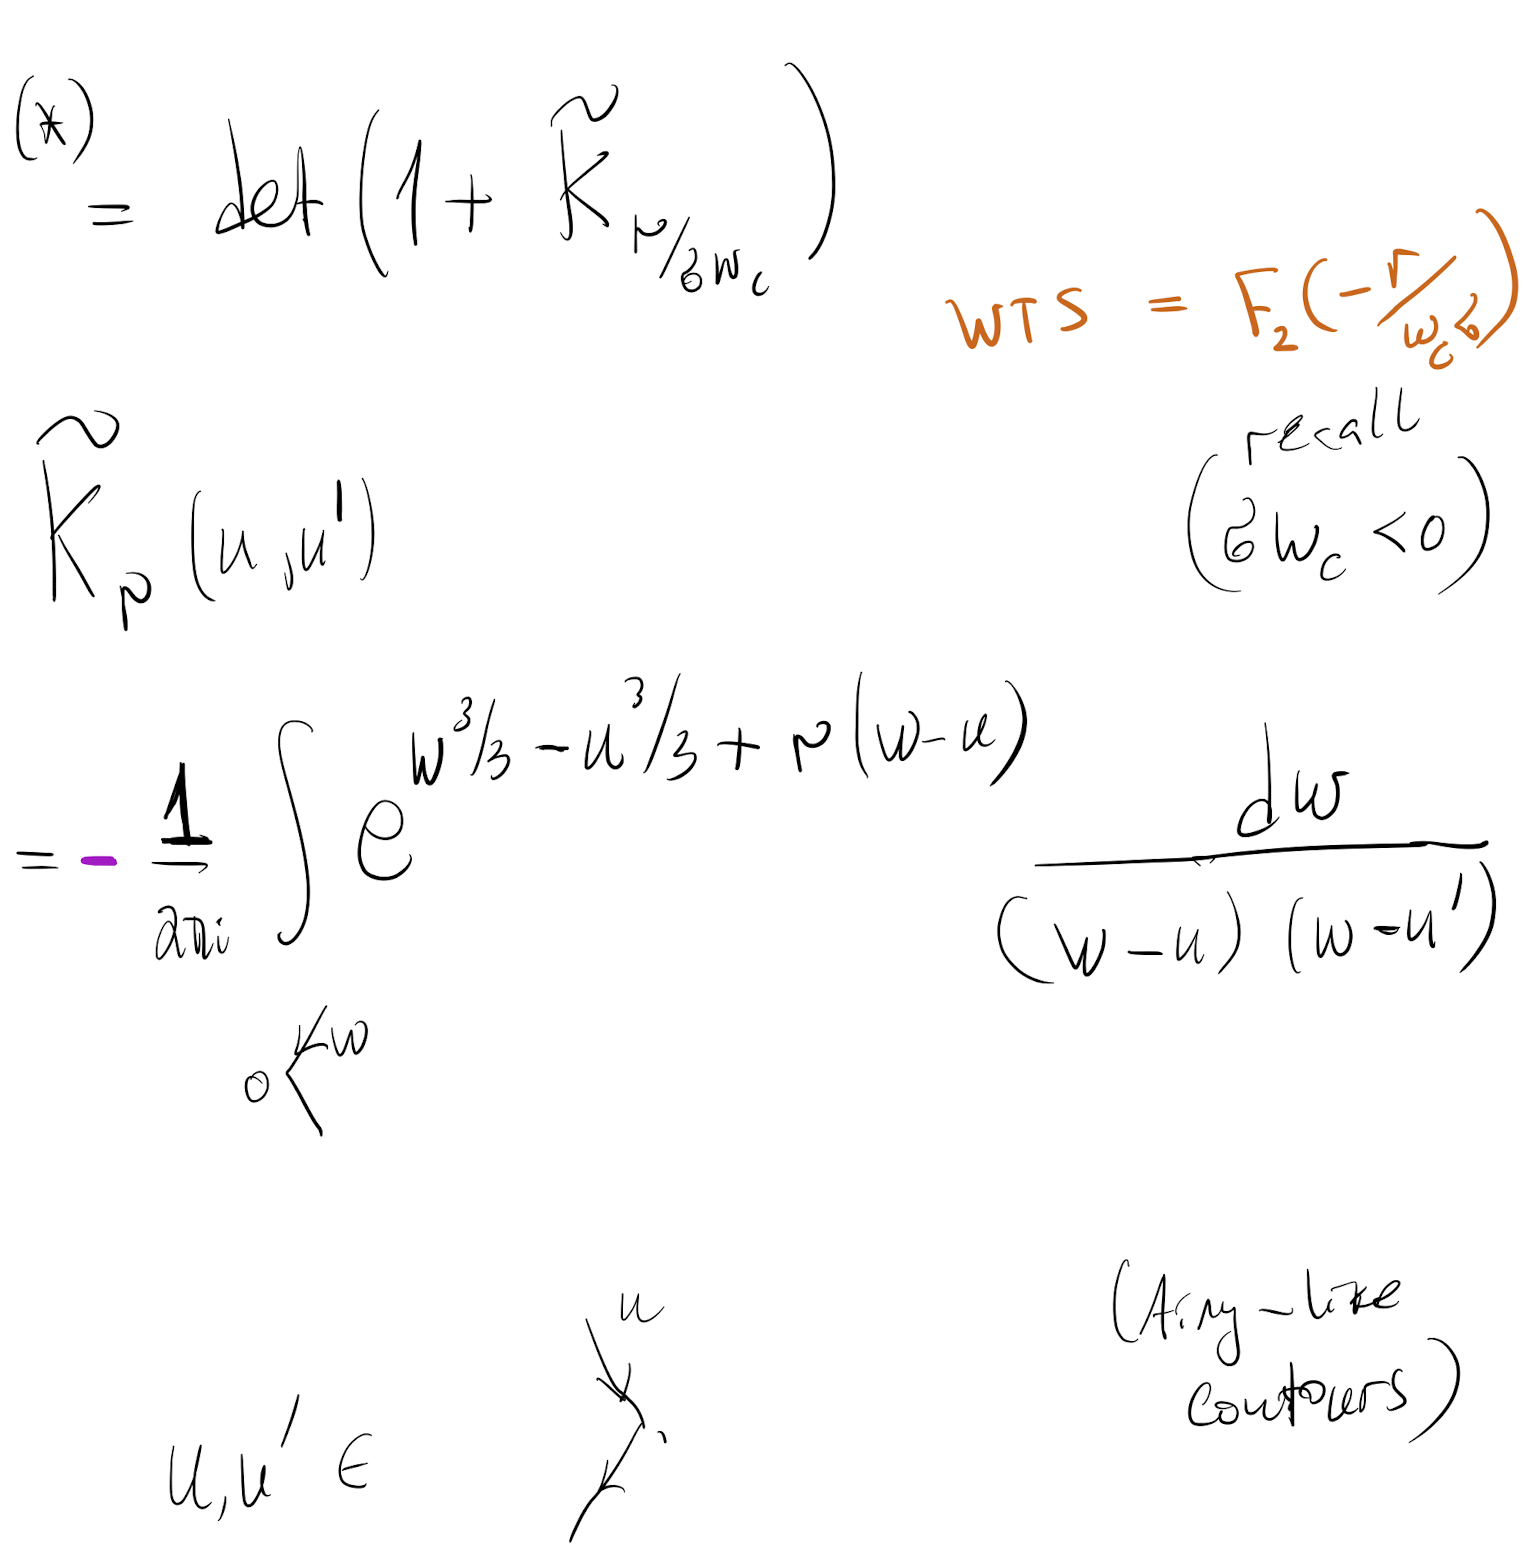 (*) = det(1 + K̃_{r/σw_c})
WTS = F₂(-r/w_c σ)
recall
(σw_c < 0)
K̃_r (u, u')
= - 1/2πi ∫ e^{w³/3 - u³/3 + r(w-u)} dw/((w-u)(w-u'))
0 w
(Airy-like
contours)
u
u, u' ∈